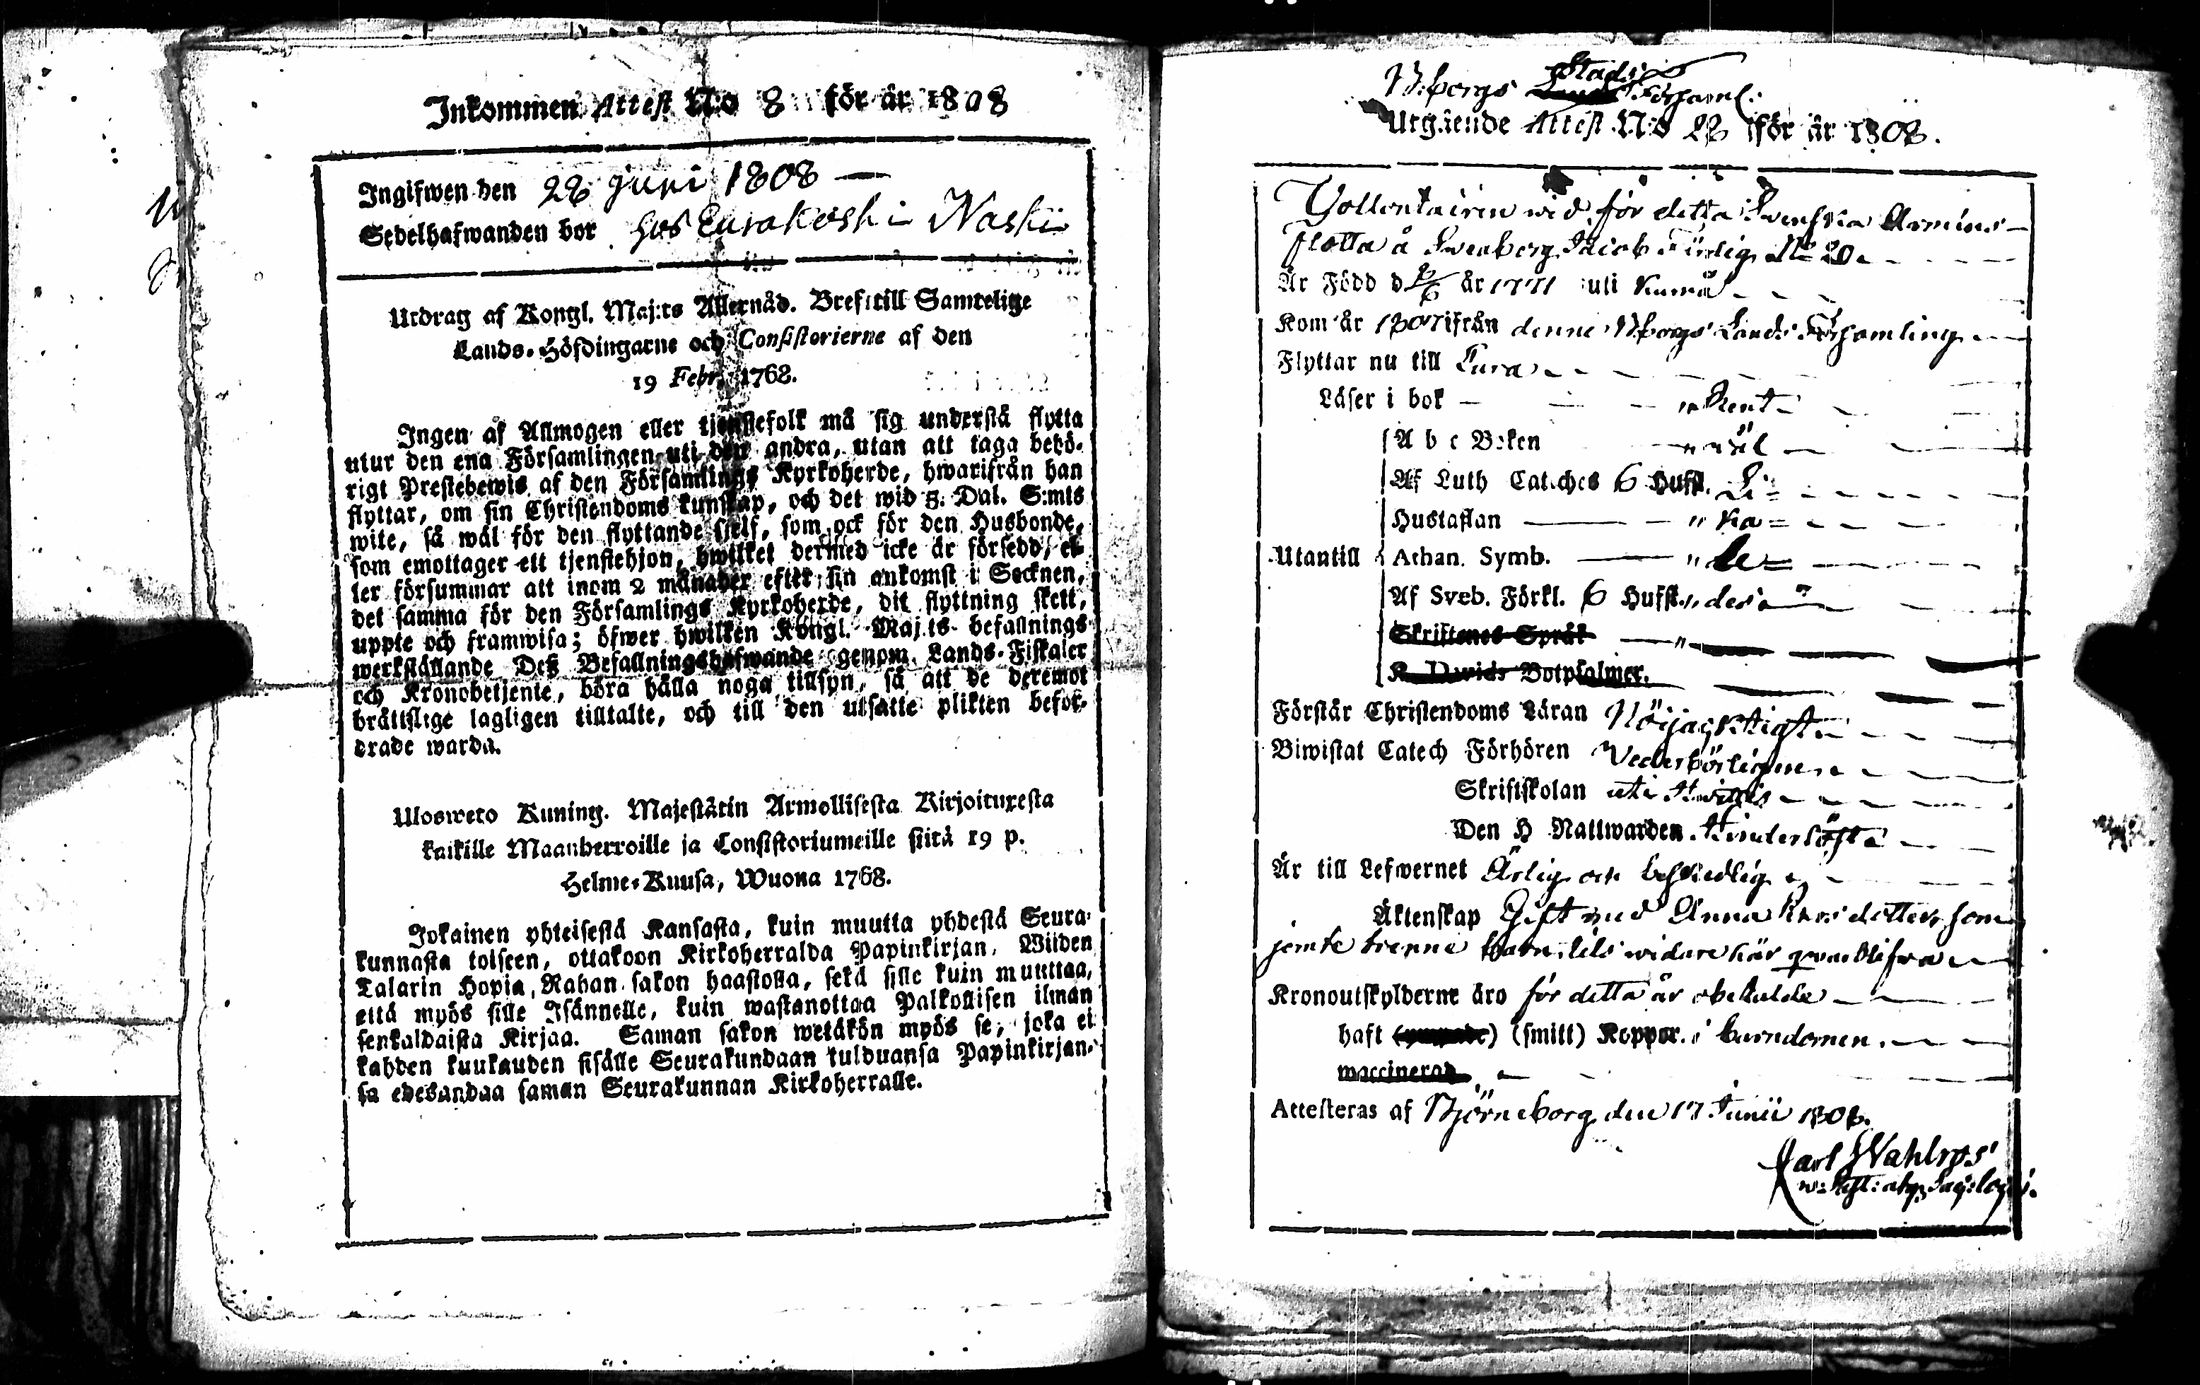 Inkommen Attest No 8 för år 1808
Ingifwen den 28 juni 1808 —
Sedelhafwanden bor hos Eurakoski Naski
Utdrag af Kongl. Maj:ts Allernåd. Bref till Samtelige
Lands-Höfdingarne och Consistorierne af den
19 Febr. 1768.
Ingen af Allmogen eller tjenstefolk må sig understå flytta
utur den ena Församlingen uti den andra, utan att taga behö-
rigt Prestebewis af den Församlings Kyrkoherde, hwarifrån han
flyttar, om sin Christendoms kunskap, och det wid 5. Dal. S:mts
wite, så wäl för den flyttande sjelf, som ock för den Husbonde,
som emottager ett tjenstehjon, hwilket dermed icke är försedd, el-
ler försummar att inom 2 månader efter sin ankomst i Socknen,
det samma för den Församlings Kyrkoherde, dit flyttning skett,
uppte och framwisa; öfwer hwilken Kongl. Maj:ts befallnings
werkställande Deß Befallningshafwande genom Lands-Fiskaler
och Kronobetjente, böra hålla noga tillsyn, så att de deremot
bråttslige lagligen tilltalte, och till den utsatte plikten befor-
drade warda.
Ulosweto Kuning. Majestätin Armollisesta Kirjoituxesta
kaikille Maanherroille ja Consistoriumeille siitä 19 p.
Helme-Kuusa, Wuona 1768.
Jokainen yhteisestä Kansasta, kuin muutta yhdestä Seura-
kunnasta toiseen, ottakoon Kirkoherralda Papinkirjan, Wiiden
Talarin Hopia Rahan sakon haastolla, sekä sille kuin muuttaa,
että myös sille Isännelle, kuin wastanottaa Palkollisen ilman
senkaldaista Kirjaa. Saman sakon wetäkön myös se, joka ei
kahden kuukauden sisälle Seurakundaan tulduansa Papinkirjan-
sa edesandaa saman Seurakunnan Kirkoherralle.
B:borgs Stads Församl:
Utgående Attest No 28 för år 1808.
Vollontairen wid för detta Svenska Armens-
flotta å Sveaborg Jacob Färlig No 20
Är Född d 2/6 år 1771 uti Kumå
Kom år 1807 ifrån denne B:borgs Lands Församling
Flyttar nu till Eura
Läser i bok — " Rent
A b c Boken — " wäl
Af Luth Cateches 6 Hufst.
Hustaflan — "
Utantill Athan. Symb. — "
Af Sveb. Förkl. 6 Hufst.
Skriftenes Språk — "
K. Davids Botpsalmer.
Förstår Christendoms Läran Nöijacktigt
Biwistat Catech Förhören Vederbörligen
Skriftskolan uti
Den H Nattwarden Hinderlöst
Är till Lefwernet Ärlig och beskedlig
Äktenskap Gift med Anna dotter, som
jemte trenne barn tils widare här qvarblifva
Kronoutskylderne äro för detta år obetalde
haft (smitt) Koppor i barndomen.
waccinerad
Attesteras af Björneborg den 17 Junii 1808.
Carl Wahlroos